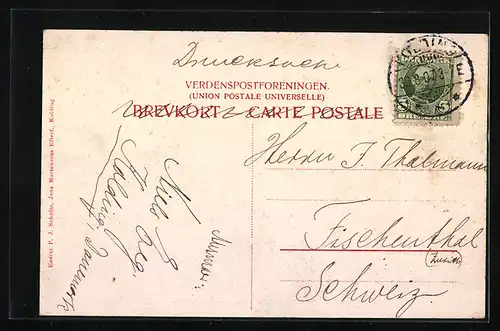 Drucksache
VERDENSPOSTFORENINGEN.
(UNION POSTALE UNIVERSELLE)
BREVKORT — CARTE POSTALE
KOLDING
Herrn J. Thalmann
Fischenthal
(Zürich)
Schweiz.
Kolding
Danemark
Eneret P. J. Schultz, Jens Mortensens Efterf., Kolding